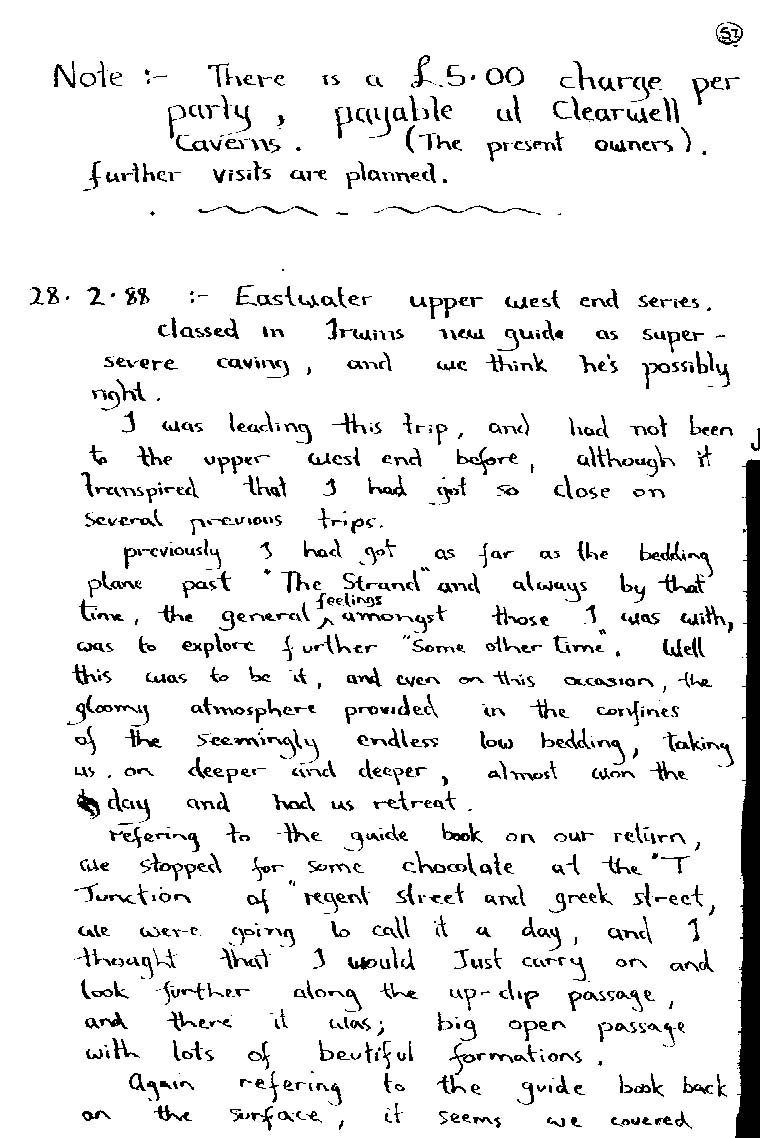 57
Note :- There is a £5.00 charge per
party, payable at Clearwell
Caverns. (The present owners).
further visits are planned.
28. 2. 88 :- Eastwater upper west end series.
classed in Irwins new guide as super-
severe caving, and we think he's possibly
right.
I was leading this trip, and had not been
to the upper west end before, although it
transpired that I had got so close on
several previous trips.
previously I had got as far as the bedding
plane past "The Strand" and always by that
time, the general feelings amongst those I was with,
was to explore further "Some other time". Well
this was to be it, and even on this occasion, the
gloomy atmosphere provided in the confines
of the seemingly endless low bedding, taking
us on deeper and deeper, almost won the
day and had us retreat.
refering to the guide book on our return,
we stopped for some chocolate at the "T
Junction of "regent street and greek street,
we were going to call it a day, and I
thought that I would Just carry on and
look further along the up-dip passage,
and there it was; big open passage
with lots of beutiful formations.
Again refering to the guide book back
on the surface, it seems we covered